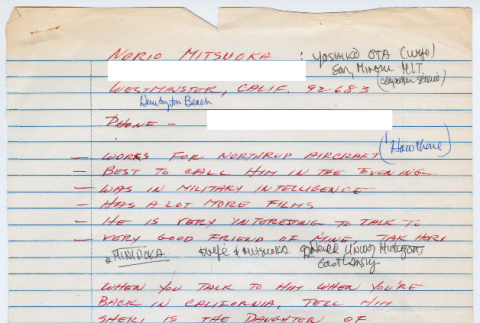 NORIO MITSUOKA : YOSHIKO OTA (wife)
Son, Minoru M.I.T
(computer science)
WESTMINSTER, CALIF. 92683
Huntington Beach
PHONE -
(Hawthorne)
- WORKS FOR NORTHRUP AIRCRAFT
- BEST TO CALL HIM IN THE EVENING
- WAS IN MILITARY INTELLIGENCE
- HAS A LOT MORE FILMS
- HE IS VERY INTERESTING TO TALK TO
- VERY GOOD FRIEND OF MINE TAK HORI
MINIDOKA wife of MITSUOKA
East Lansing
WHEN YOU TALK TO HIM WHEN YOU'RE
BACK IN CALIFORNIA, TELL HIM
SHERI IS THE DAUGHTER OF